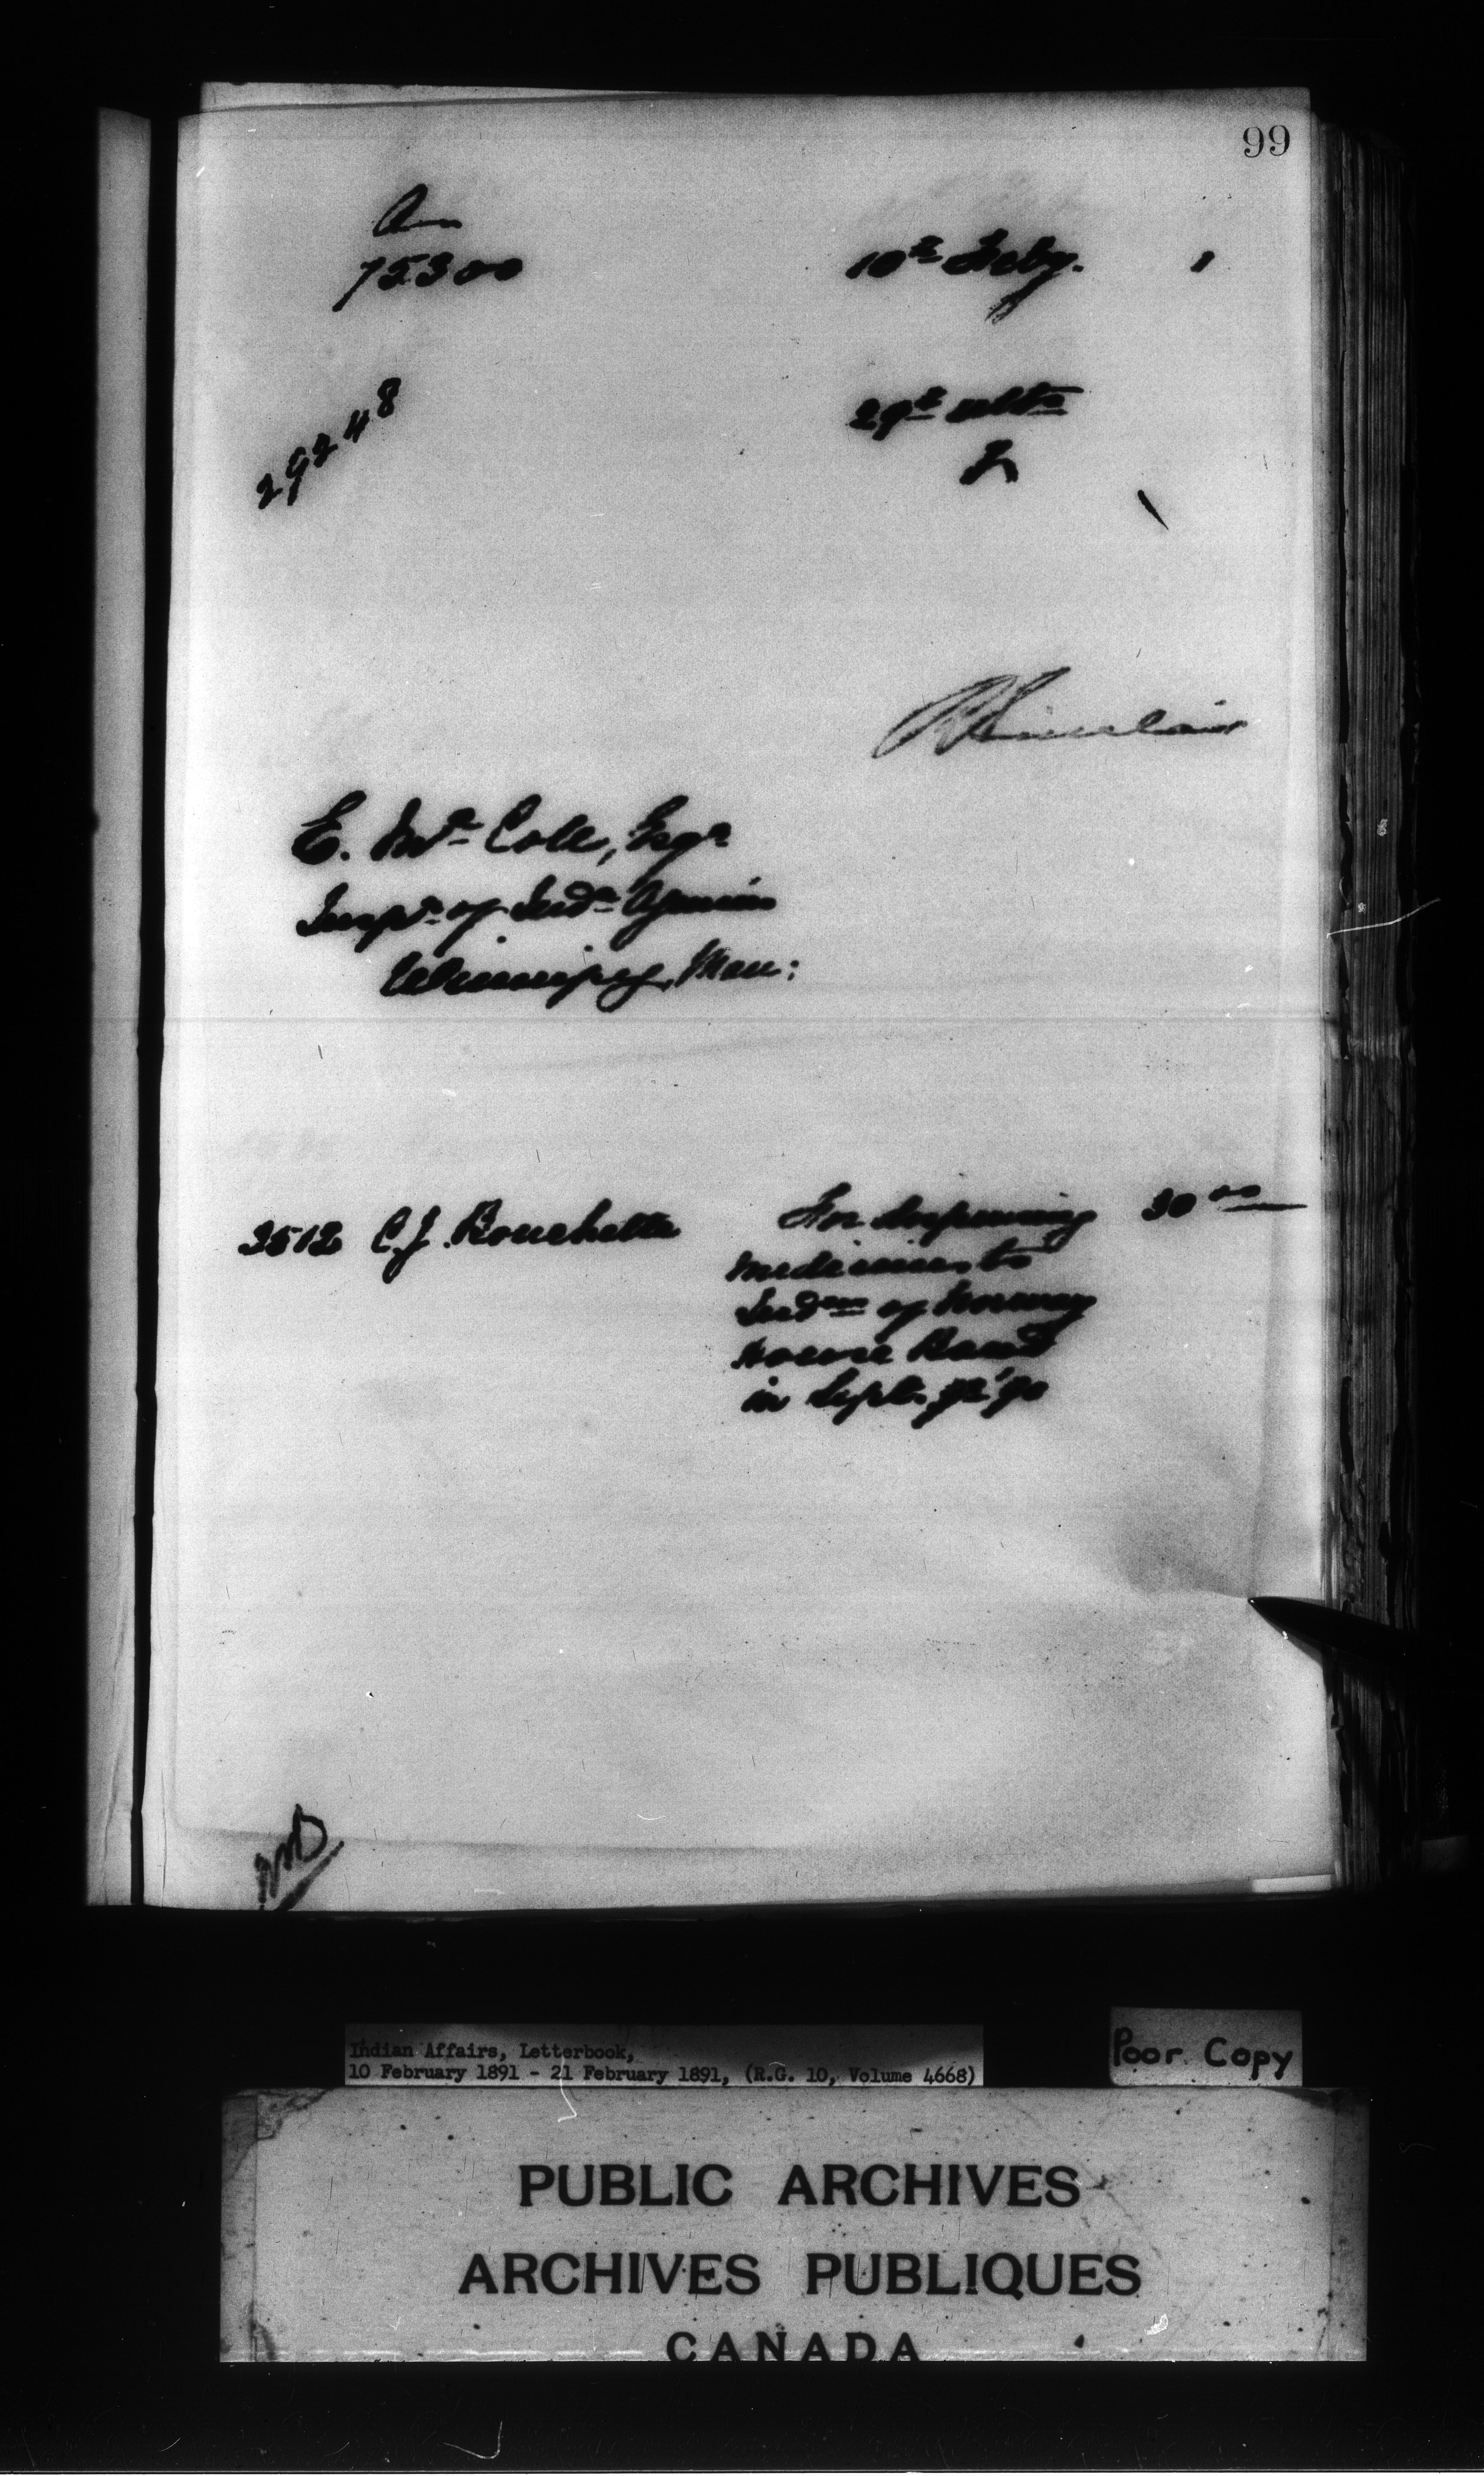 99
An
75300
10th Feby.
29248
29th ulto
R Sinclair
E. McColl, Esqr
Inspr. of Indn. Agencies
Winnipeg, Man:
3512 C. J. Bouchette For dispensing 30 00
medicines to
Indns of Norway
House Band
in Sept. '90
Indian Affairs, Letterbook,
10 February 1891 - 21 February 1891, (R.G. 10, Volume 4668)
Poor Copy
PUBLIC ARCHIVES
ARCHIVES PUBLIQUES
CANADA